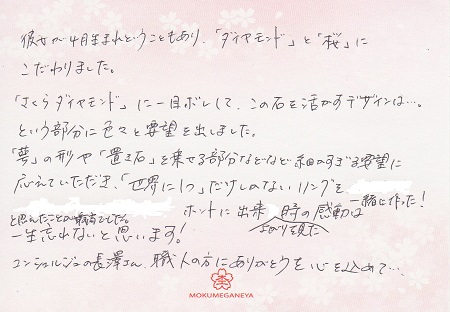 彼女が4月生まれということもあり、「ダイヤモンド」と「桜」に
こだわりました。
「さくらダイヤモンド」に一目ボレして、この石を活かすデザインは…。
という部分に色々と要望を出しました。
「夢」の形や「置き石」を乗せる部分などなど細かすぎる要望に
応えていただき、「世界に1つ」だけしかないリングを
一緒に作った!
と思えたことが最高でした。
ホントに出来上がり見た時の感動は
一生忘れないと思います!
コンシェルジュの長澤さん、職人の方にありがとうを心を込めて…
MOKUMEGANEYA